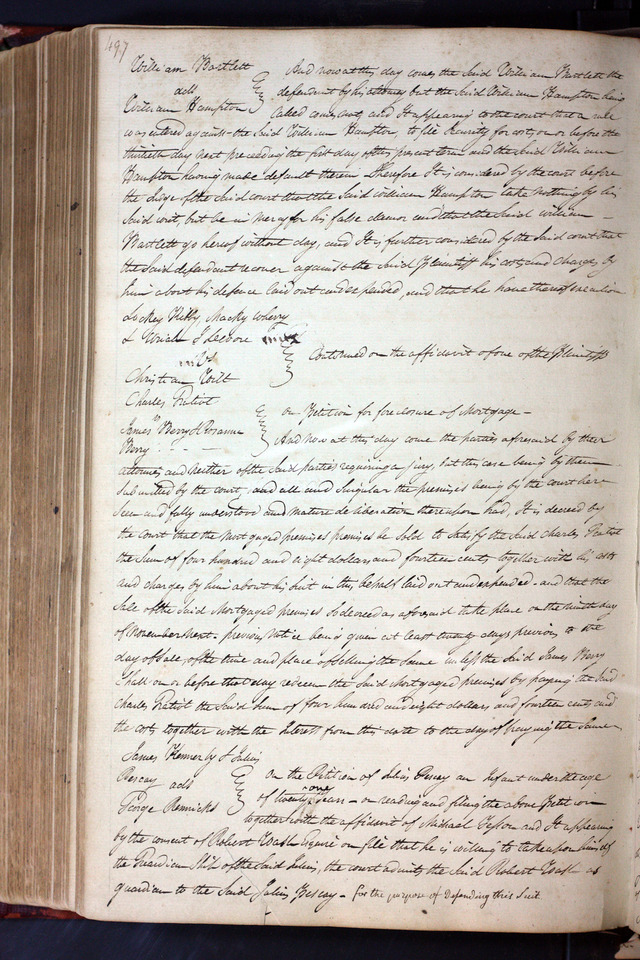 497
William Bartlett
ads
William Hampton
And now at this day comes the Said William Bartlett the
defendant by his attorney but the Said William Hampton being
Called comes not, and It appearing to the court that a rule
was entered against the Said William Hampton, to file Security for costs on or before the
thirtieth day next preceeding the first day of this present term and the Said William
Hampton having made default therein Therefore It is considered by the court before
the Judge of the Said court that the Said William Hampton take nothing by his
Said writ, but be in mercy for his false clamor and that the Said William
Bartlett go hereof without day, and It is further considered by the Said court that
the Said defendant recover against the Said Plaintiff his costs and charges by
him about his defence laid out and expended, and that he have thereof execution
Macky Wherry
&
vs
Christian Wilt
Continued on the affidavit of one of the Plaintiffs
Charles Gratiot
vs
James Berry & Rosanna
Berry
On Petition for foreclosure of Mortgage
And now at this day come the parties aforesaid by their
attornies, and neither of the Said parties requiring a jury, but this case being by them
Submitted by the court, and all and Singular the premises being by the court here
Seen and fully understood and mature deliberation thereupon had, It is decreed by
the court that the mortgaged premises premises be Sold to Satisfy the Said Charles Gratiot
the Sum of four hundred and eight dollars and fourteen cents together with his costs
and charges by him about his Suit in this behalf laid out and expended - and that the
Sale of the Said Mortgaged premises So decreed as aforesaid take place on the ninth day
of November next - previous notice being given at least twenty days previous to the
day of Sale, of the time and place of Selling the Same unless the Said James Berry
Shall on or before that day redeem the Said Mortgaged premises by paying the Said
Charles Gratiot the Said Sum of four hundred and eight dollars and fourteen cents and
the costs together with the Interest from this date to the day of paying the Same
James Kennerly & Julius
Pescay ads
George Rennicks
On the Petition of Julius Pescay an Infant under the age
of twenty one years - on reading and filing the above Petition
together with the affidavit of Michael Tesson and It appearing
by the consent of Robert Wash Esquire on file that he is willing to take upon himself
the Guardian Ship of the Said Julius, the court admits the Said Robert Wash as
guardian to the Said Julius Pescay - for the purpose of Defending this Suit